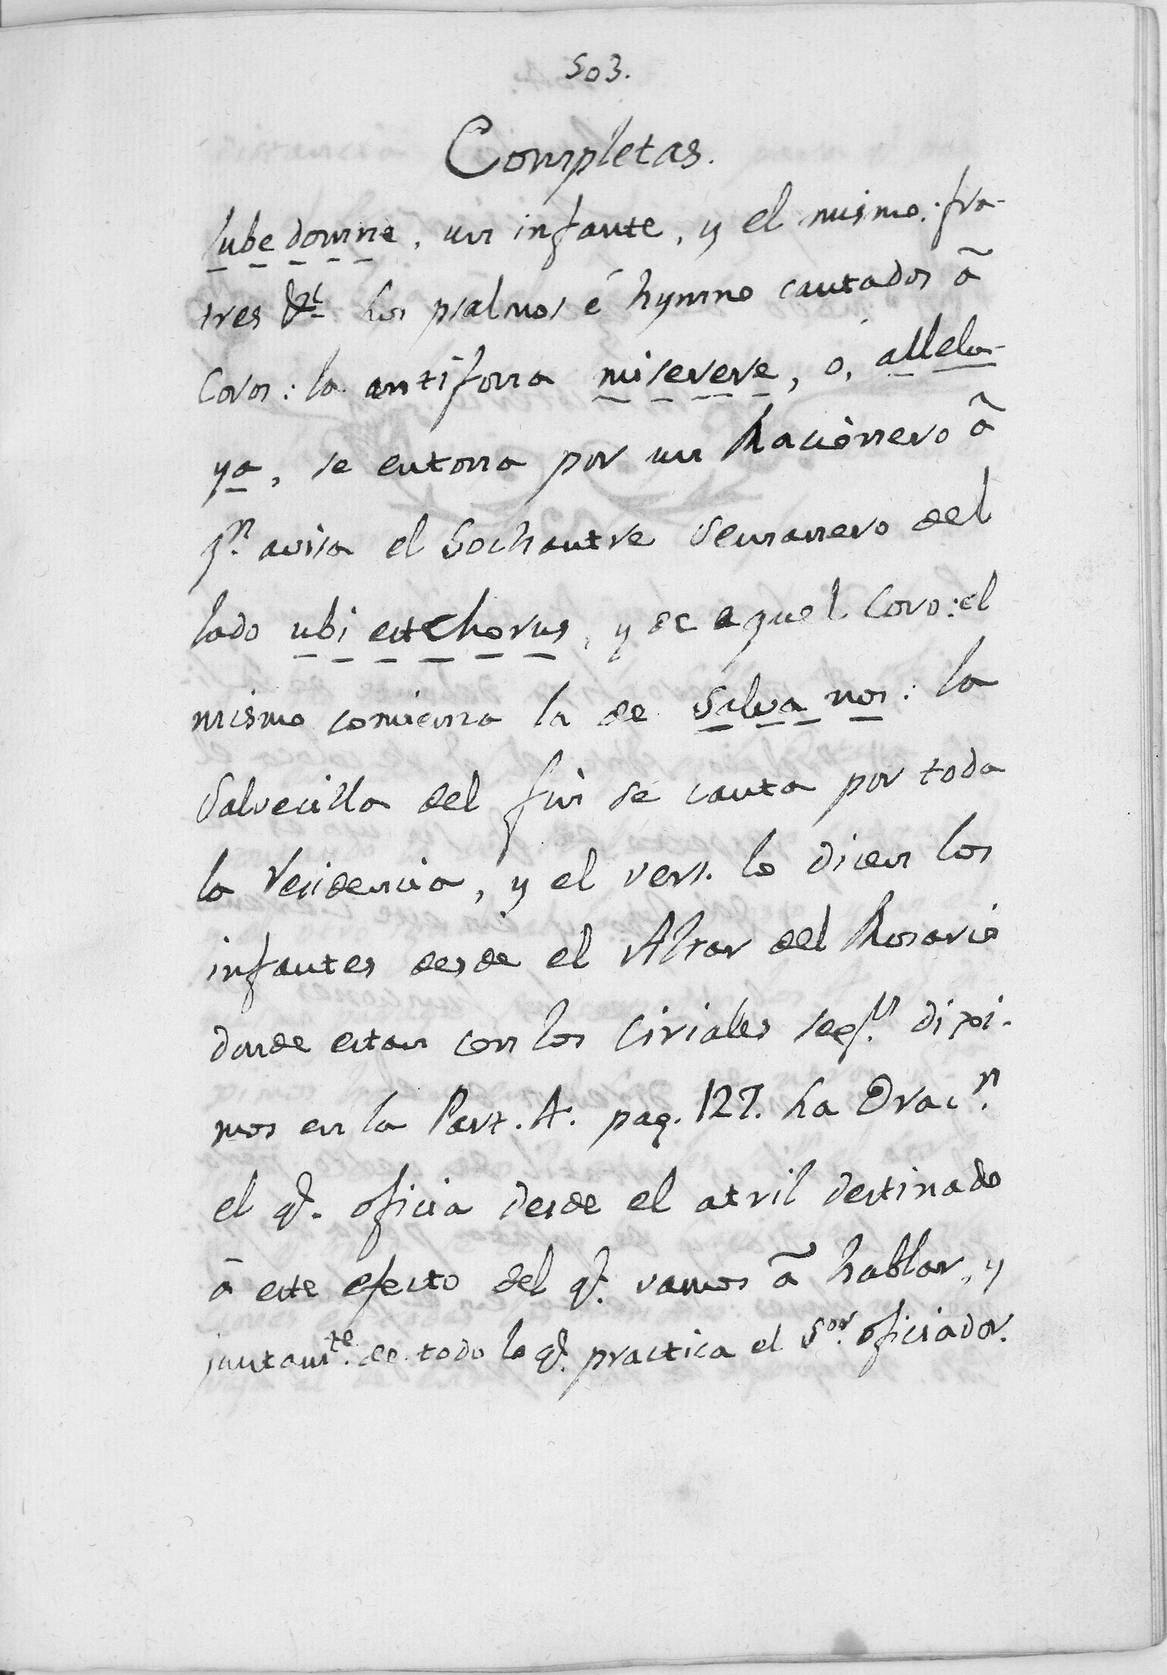 503.
Completas.
Iube domne, un infante, y el mismo: fra-
tres &c. los psalmos é hymno cantados â
Coros: la antifona miserere, ó, allelu-
ya, se entona por un Racionero â
qn. avisa el Sochantre Semanero del
lado ubi est Chorus, y de aquel Coro: el
mismo comienza la de Salva nos: la
Salvecilla del fin se canta por toda
la residencia, y el vers. lo dicen los
infantes desde el Altar del Rosario
donde estan con los Ciriales segn. dixi-
mos en la Part. A. pag. 127. La Oracn.
el q. oficia desde el atril destinado
â este efecto del q. vamos â hablar, y
juntamte. de todo lo q. practica el Sor. oficiador.